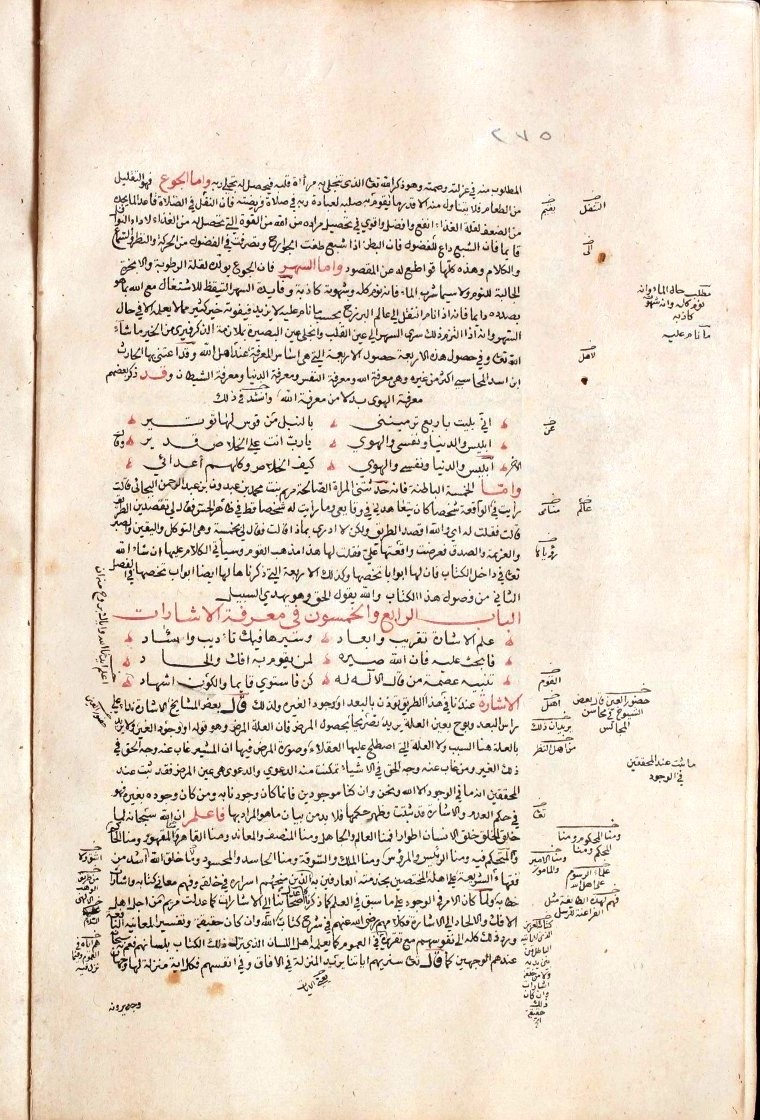 ٢٧٥
المطلوبة منه في عزلته وصمته وهو ذكر الله تعالى الذي يتجلى به مرآة قلبه فيحصل له تجلى ربه واما الجوع فهو التقليل
من الطعام فلا يتناول منه الا قدر ما يقوم به صلبه لعبادة ربه في صلاة فريضته فان التنفل في الصلاة قاعدا بما يجده
من الضعف لقلة الغذاء انفع وافضل واقوى في تحصيل مراده من الله من القوة التي تحصل له من الغذاء لاداء النوافل
قايما فان الشبع داع للفضول فان البطن اذا شبع طغت الجوارح وتصرفت في الفضول من الحركة والنظر والسماع
والكلام وهذه كلها قواطع له عن المقصود واما السهر فان الجوع يولده لقلة الرطوبة والابخرة
الجالبة للنوم ولا سيما شرب الماء فانه نوم كله وشهوته كاذبة وفايدة السهر التيقظ للاشتغال مع الله بما هو
بصدده دايما فانه اذا نام انتقل الى عالم البرزخ بحسب ما نام عليه لا يزيد فيفوته خير كثير مما لا يعلمه الا في حال
السهر وانه اذا التزم ذلك سرى السهر الى عين القلب وانجلى عين البصيرة بملازمة الذكر فيرى من الخير ما شاء
الله تعالى وفي حصول هذه الاربعة حصول الاربعة التي هي اساس المعرفة عند اهل الله وقد اعتنى بها الحارث
ابن اسد المحاسبي اكثر من غيره وهي معرفة الله ومعرفة النفس ومعرفة الدنيا ومعرفة الشيطان وقد ذكر بعضهم
معرفة الهوى بدلا من معرفة الله وانشد في ذلك
اني بليت باربع يرمينني بالنبل من قوس لها توتير
ابليس والدنيا ونفسي والهوى يا رب انت على الخلاص قدير
ابليس والدنيا ونفسي والهوى كيف الخلاص وكلهم اعدائي
واما الخمسة الباطنة فانه حدثتني المراة الصالحة مريم بنت محمد بن عبدون بن عبد الرحمن البجائي قالت
رايت في الواقعة شخصا كان يتعاهدني في وقايعي وما رايت له شخصا قط في ظاهر الحس فقال لي تقصدين الطريق
قالت فقلت له اي والله اقصد الطريق ولكن لا ادري بماذا قالت فقال لي بخمسة وهي التوكل واليقين والصبر
والعزيمة والصدق فعرضت واقعتها علي فقلت لها هذا مذهب القوم وسياتي الكلام عليها ان شاء الله
تعالى في داخل الكتاب فان لها ابوابا تخصها وكذلك الاربعة التي ذكرناها لها ايضا ابواب تخصها في الفصل
الثاني من فصول هذا الكتاب والله يقول الحق وهو يهدي السبيل
الباب الرابع والخمسون في معرفة الاشارات
علم الاشارة تقريب وابعاد وسيرها فيك تاديب واسناد
فابحث عليه فان الله صيره لمن يقوم به افك والحاد
تنبيه عصمة من قال الاله له كن فاستوى قايما والكون اشهاد
الاشارة عندنا في هذا الطريق تؤذن بالبعد او وجود الغير ولذلك قال بعض المشايخ الاشارة نداء على
راس البعد وبوح بعين العلة يريد تصريحا بحصول المرض فان العلة المرض وهو قوله او وجود الغير ولا يريد
بالعلة هنا السبب ولا العلة التي اصطلح عليها العقلاء وصورة المرض فيها ان المشير غاب عنه وجه الحق في
ذلك الغير ومن غاب عنه وجه الحق في الاشياء تمكنت منه الدعوى والدعوى هي عين المرض فقد ثبت عند
المحققين انه ما في الوجود الا الله ونحن وان كنا موجودين فانما كان وجودنا به ومن كان وجوده بغيره فهو
في حكم العدم والاشارة قد ثبتت وظهر حكمها فلا بد من بيان ما هو المراد بها فاعلم ان الله سبحانه لما
خلق الخلق خلق الانسان اطوارا فمنا العالم والجاهل ومنا المنصف والمعاند ومنا القاهر والمقهور ومنا الحاكم
والمتحكم فيه ومنا الرئيس والمرؤس ومنا الملك والسوقة ومنا الحاسد والمحسود وما خلق الله اشد من
فقهاء الشريعة على اهله المختصين بخدمته العارفين به الذين منحهم اسراره في خلقه وفهم معاني كتابه واشارات
ولما كان الامر في الوجود على ما سبق في العلم كما ذكرناه عدل اصحابنا الى الاشارات كما عدلت مريم من اجل اهل
الافك والالحاد الى الاشارة فكلامهم رضي الله عنهم في شرح كتاب الله وان كان حقيقة وتفسيرا لمعانيه النافعة
ورد ذلك كله الى نفوسهم مع تقريرهم في العموم كما يعلمه اهل اللسان الذي نزل ذلك الكتاب بلسانهم فعم به
عندهم الوجهين كما قال تعالى سنريهم اياتنا يريد المنزلة في الافاق وفي انفسهم فكل اية منزلة لها وجهان
وجه يرونه
التنفل
مطلب حال الماء وانه
نوم كله وشهوته
كاذبة
ما نام عليه
لاهل
عالم
القوم
حضور العين قال بعض
الشيوخ في محاسن
المجالس
يريدان ذلك
من اهل النظر
ما ثبت عند المحققين
في الوجود
تعالى
ومنا المحكوم ومنا
المحكم ومنا
ومنا الامير
والمامور
علماء الرسوم
فهم لهذه الطايفة مثل
الفراعنة للرسل